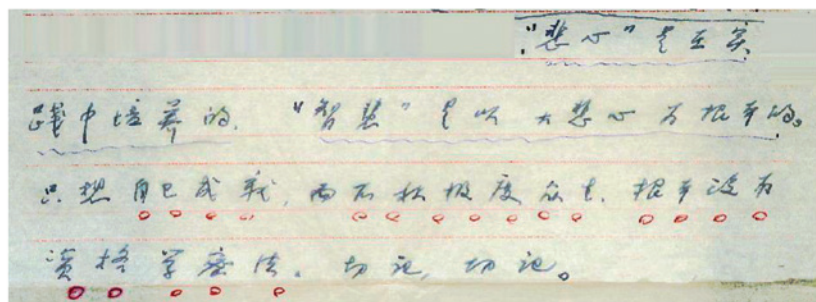 “悲心”是在实
践中培养的。“智慧”是以大悲心为根本的。
只想自己成就，而不积极度众生，根本没有
资格学密法。切记，切记。